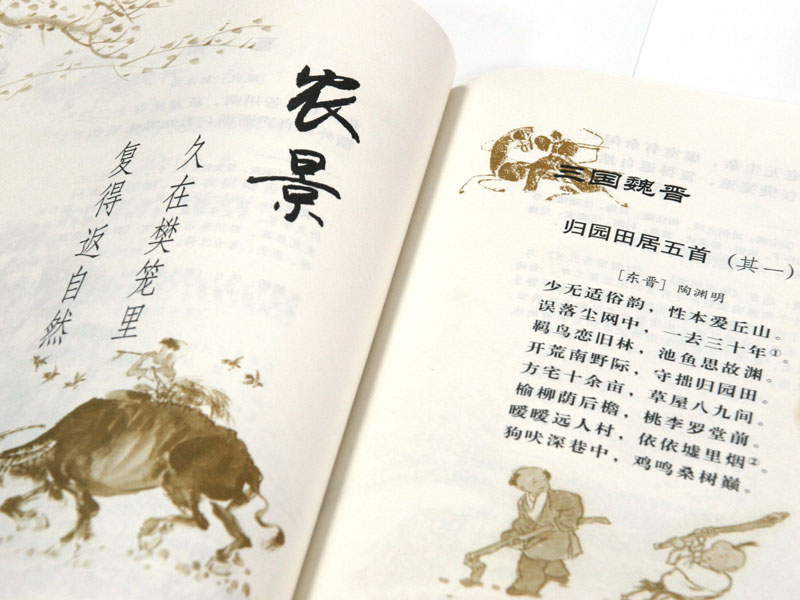 农景
久在樊笼里
复得返自然
三国魏晋
归园田居五首（其一）
［东晋］陶渊明
少无适俗韵，性本爱丘山。
误落尘网中，一去三十年①。
羁鸟恋旧林，池鱼思故渊。
开荒南野际，守拙归园田。
方宅十余亩，草屋八九间。
榆柳荫后檐，桃李罗堂前。
暧暧远人村，依依墟里烟②。
狗吠深巷中，鸡鸣桑树巅。